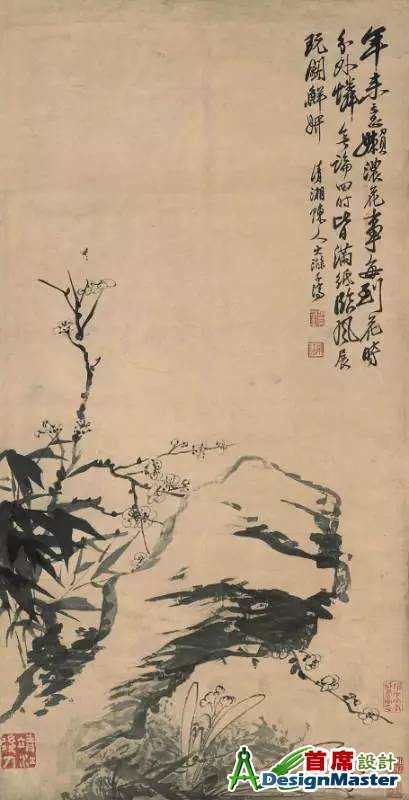 年来意嬾濃花事每到花時
分外憐無論四时皆滿紙臨風展
玩鬪鮮妍 清湘陳人大滌子濟
首席設計
ADesignMaster